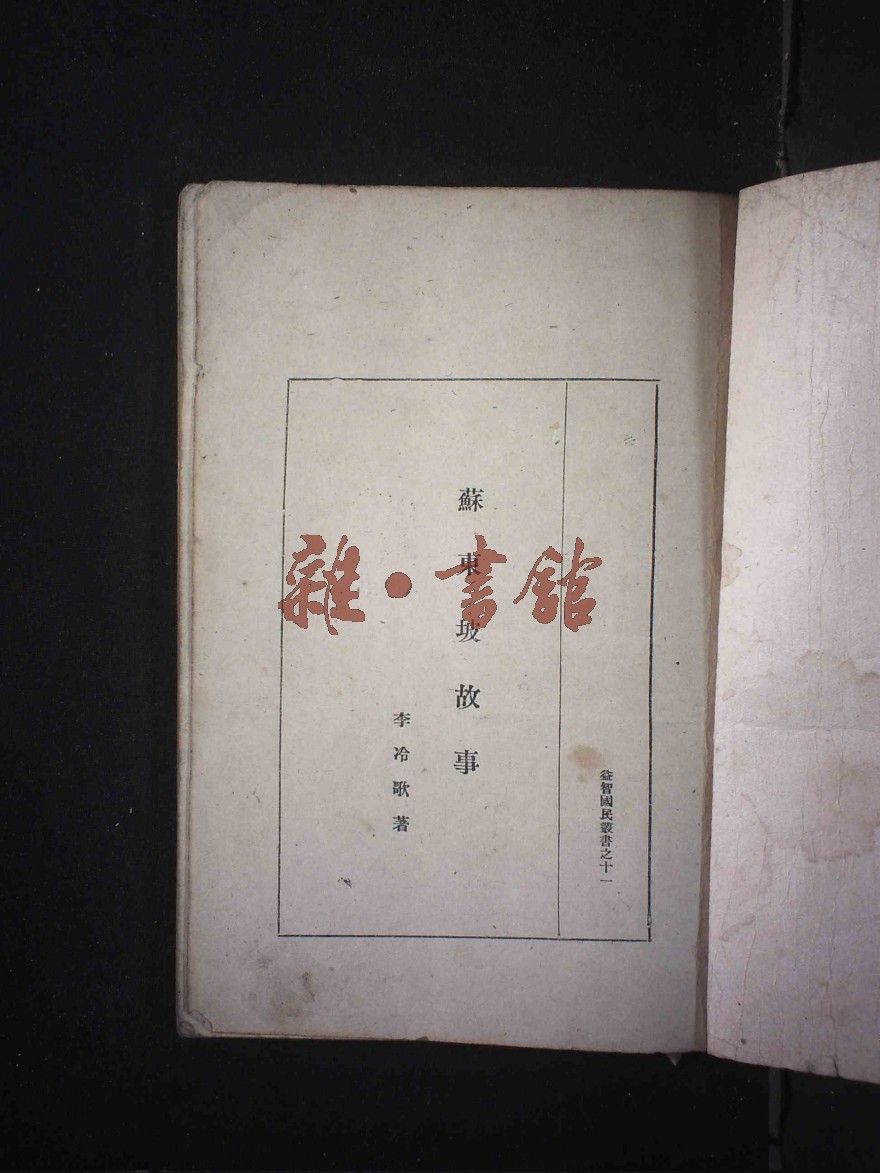 益智國民叢書之十一
蘇東坡故事
李冷歌著
雜·書館